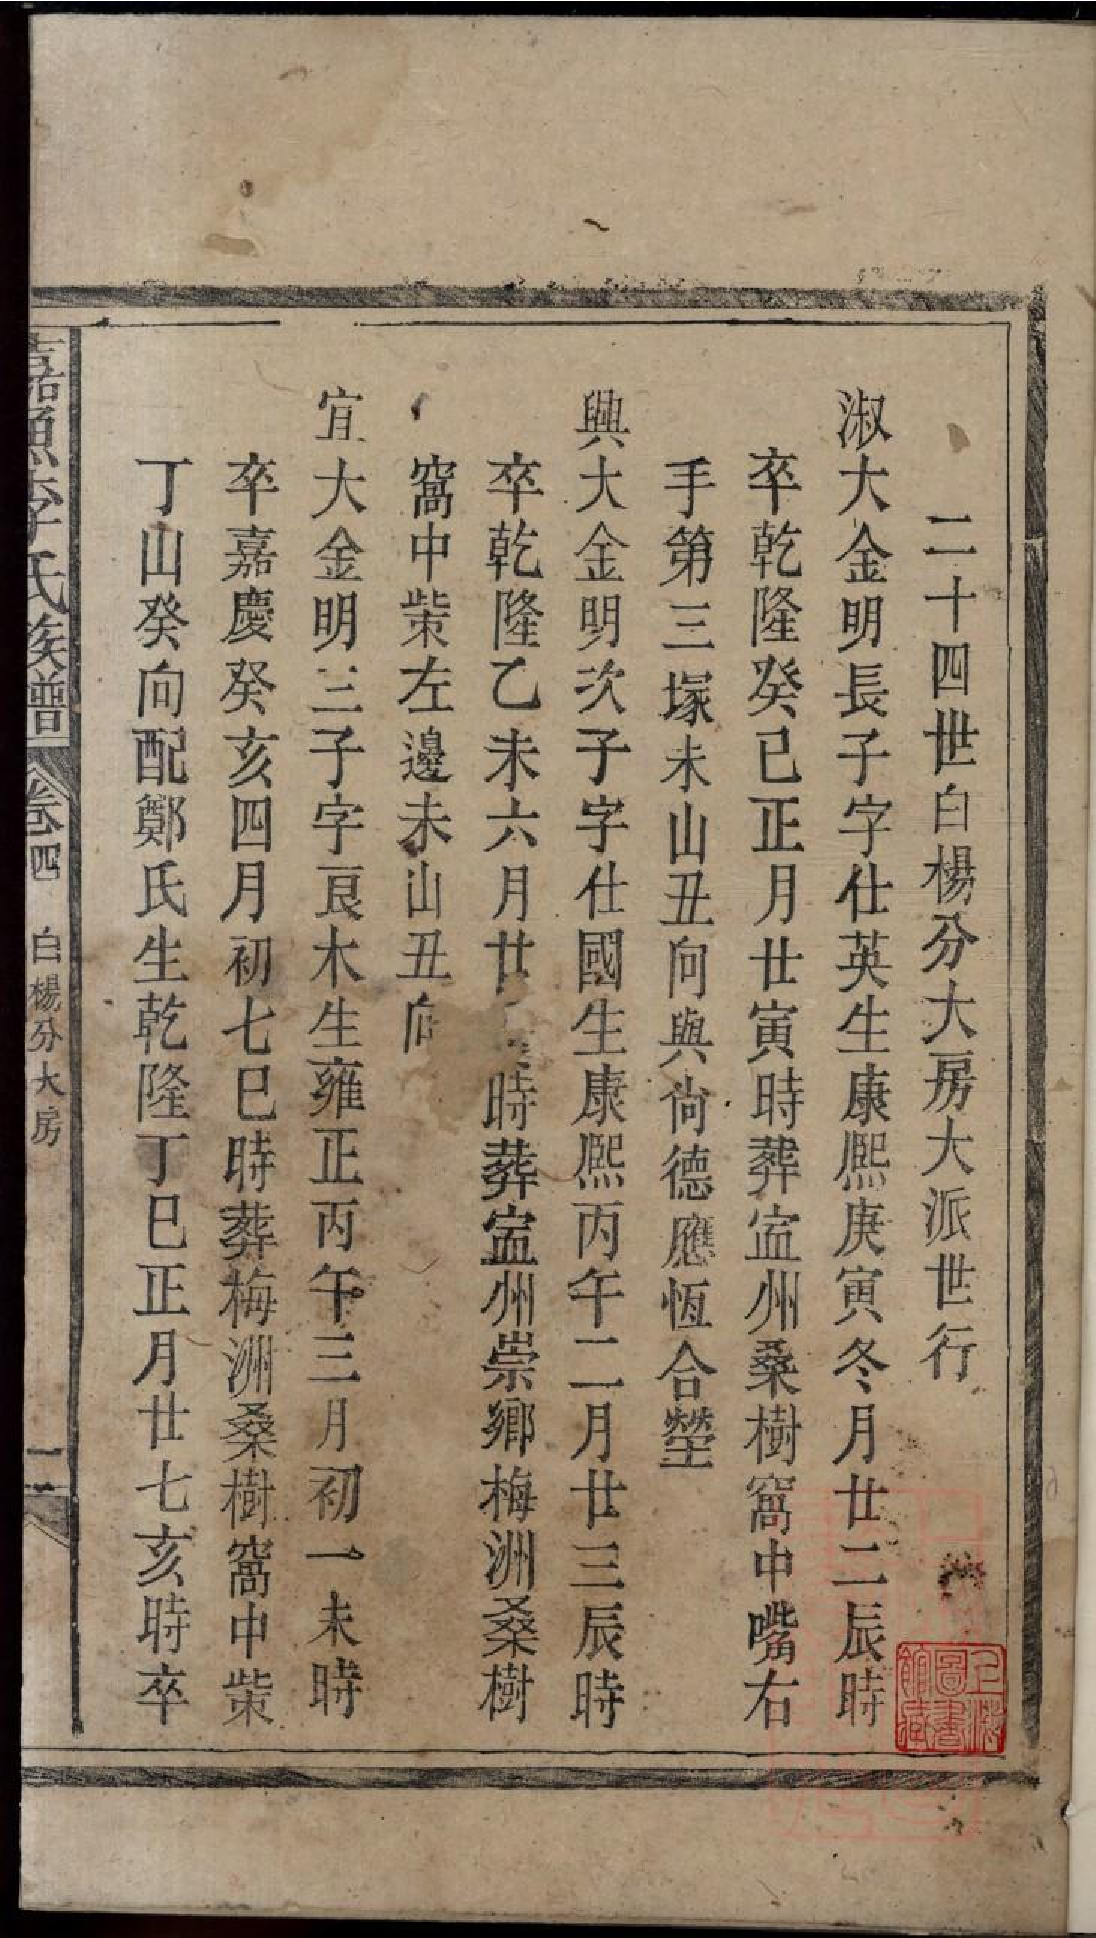 二十四世白楊分大房大派世行
淑大金明長子字仕英生康熙庚寅冬月廿二辰時
卒乾隆癸巳正月廿寅時葬寍州桑樹窩中嘴右
手第三塚未山丑向與尙德應恆合塋
興大金明次子字仕國生康熙丙午二月廿三辰時
卒乾隆乙未六月廿時葬寍州崇鄉梅洲桑樹
窩中柴左邊未山丑向
宜大金明三子字良木生雍正丙午三月初一未時
卒嘉慶癸亥四月初七巳時葬梅洲桑樹窩中柴
丁山癸向配鄭氏生乾隆丁巳正月廿七亥時卒
李氏族譜 卷四 白楊分大房 一
上海圖書館藏